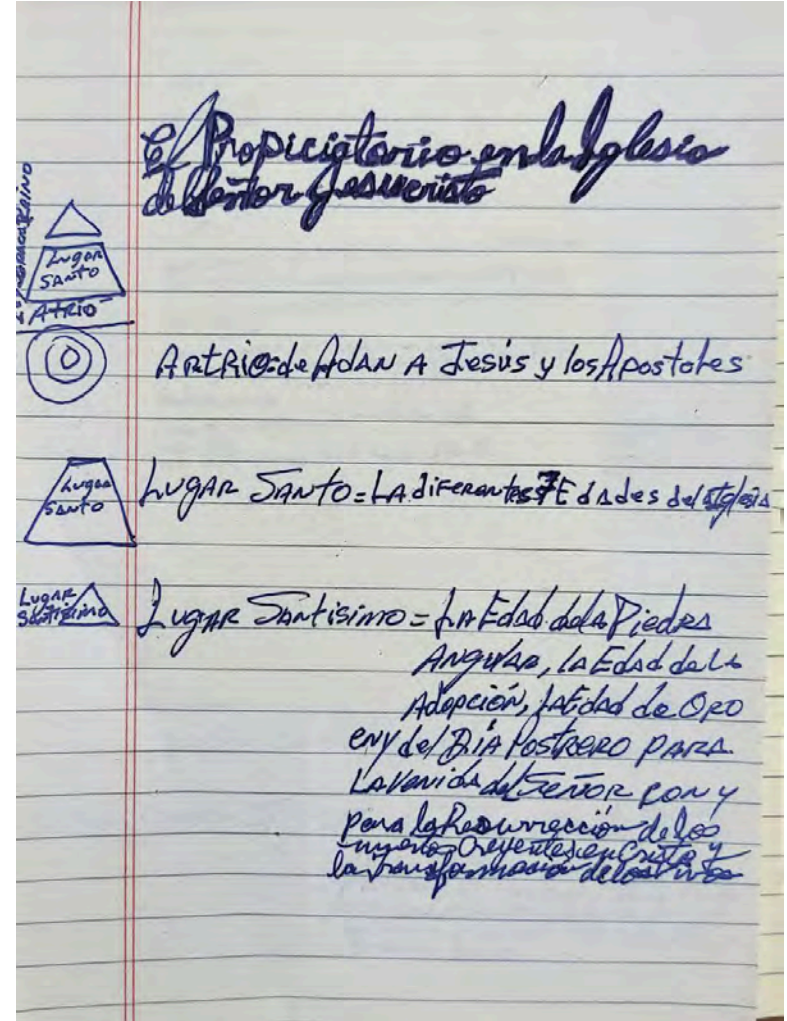 El Propiciatorio en la Iglesia
del Señor Jesucristo
Lugar
Santo
Atrio
Artrio=de Adan A Jesús y los Apostoles
Lugar
Santo
Lugar Santo=LA diferentes 7 Edades de la Iglesia
Lugar
Santisimo
Lugar Santisimo=La Edad de la Piedra
Angular, la Edad de la
Adopción, la Edad de Oro
en y del DíA Postrero para
La Venida del Señor con y
para la Resurrección de los
muertos Creyentes en Cristo y
la transformación de los Vivos